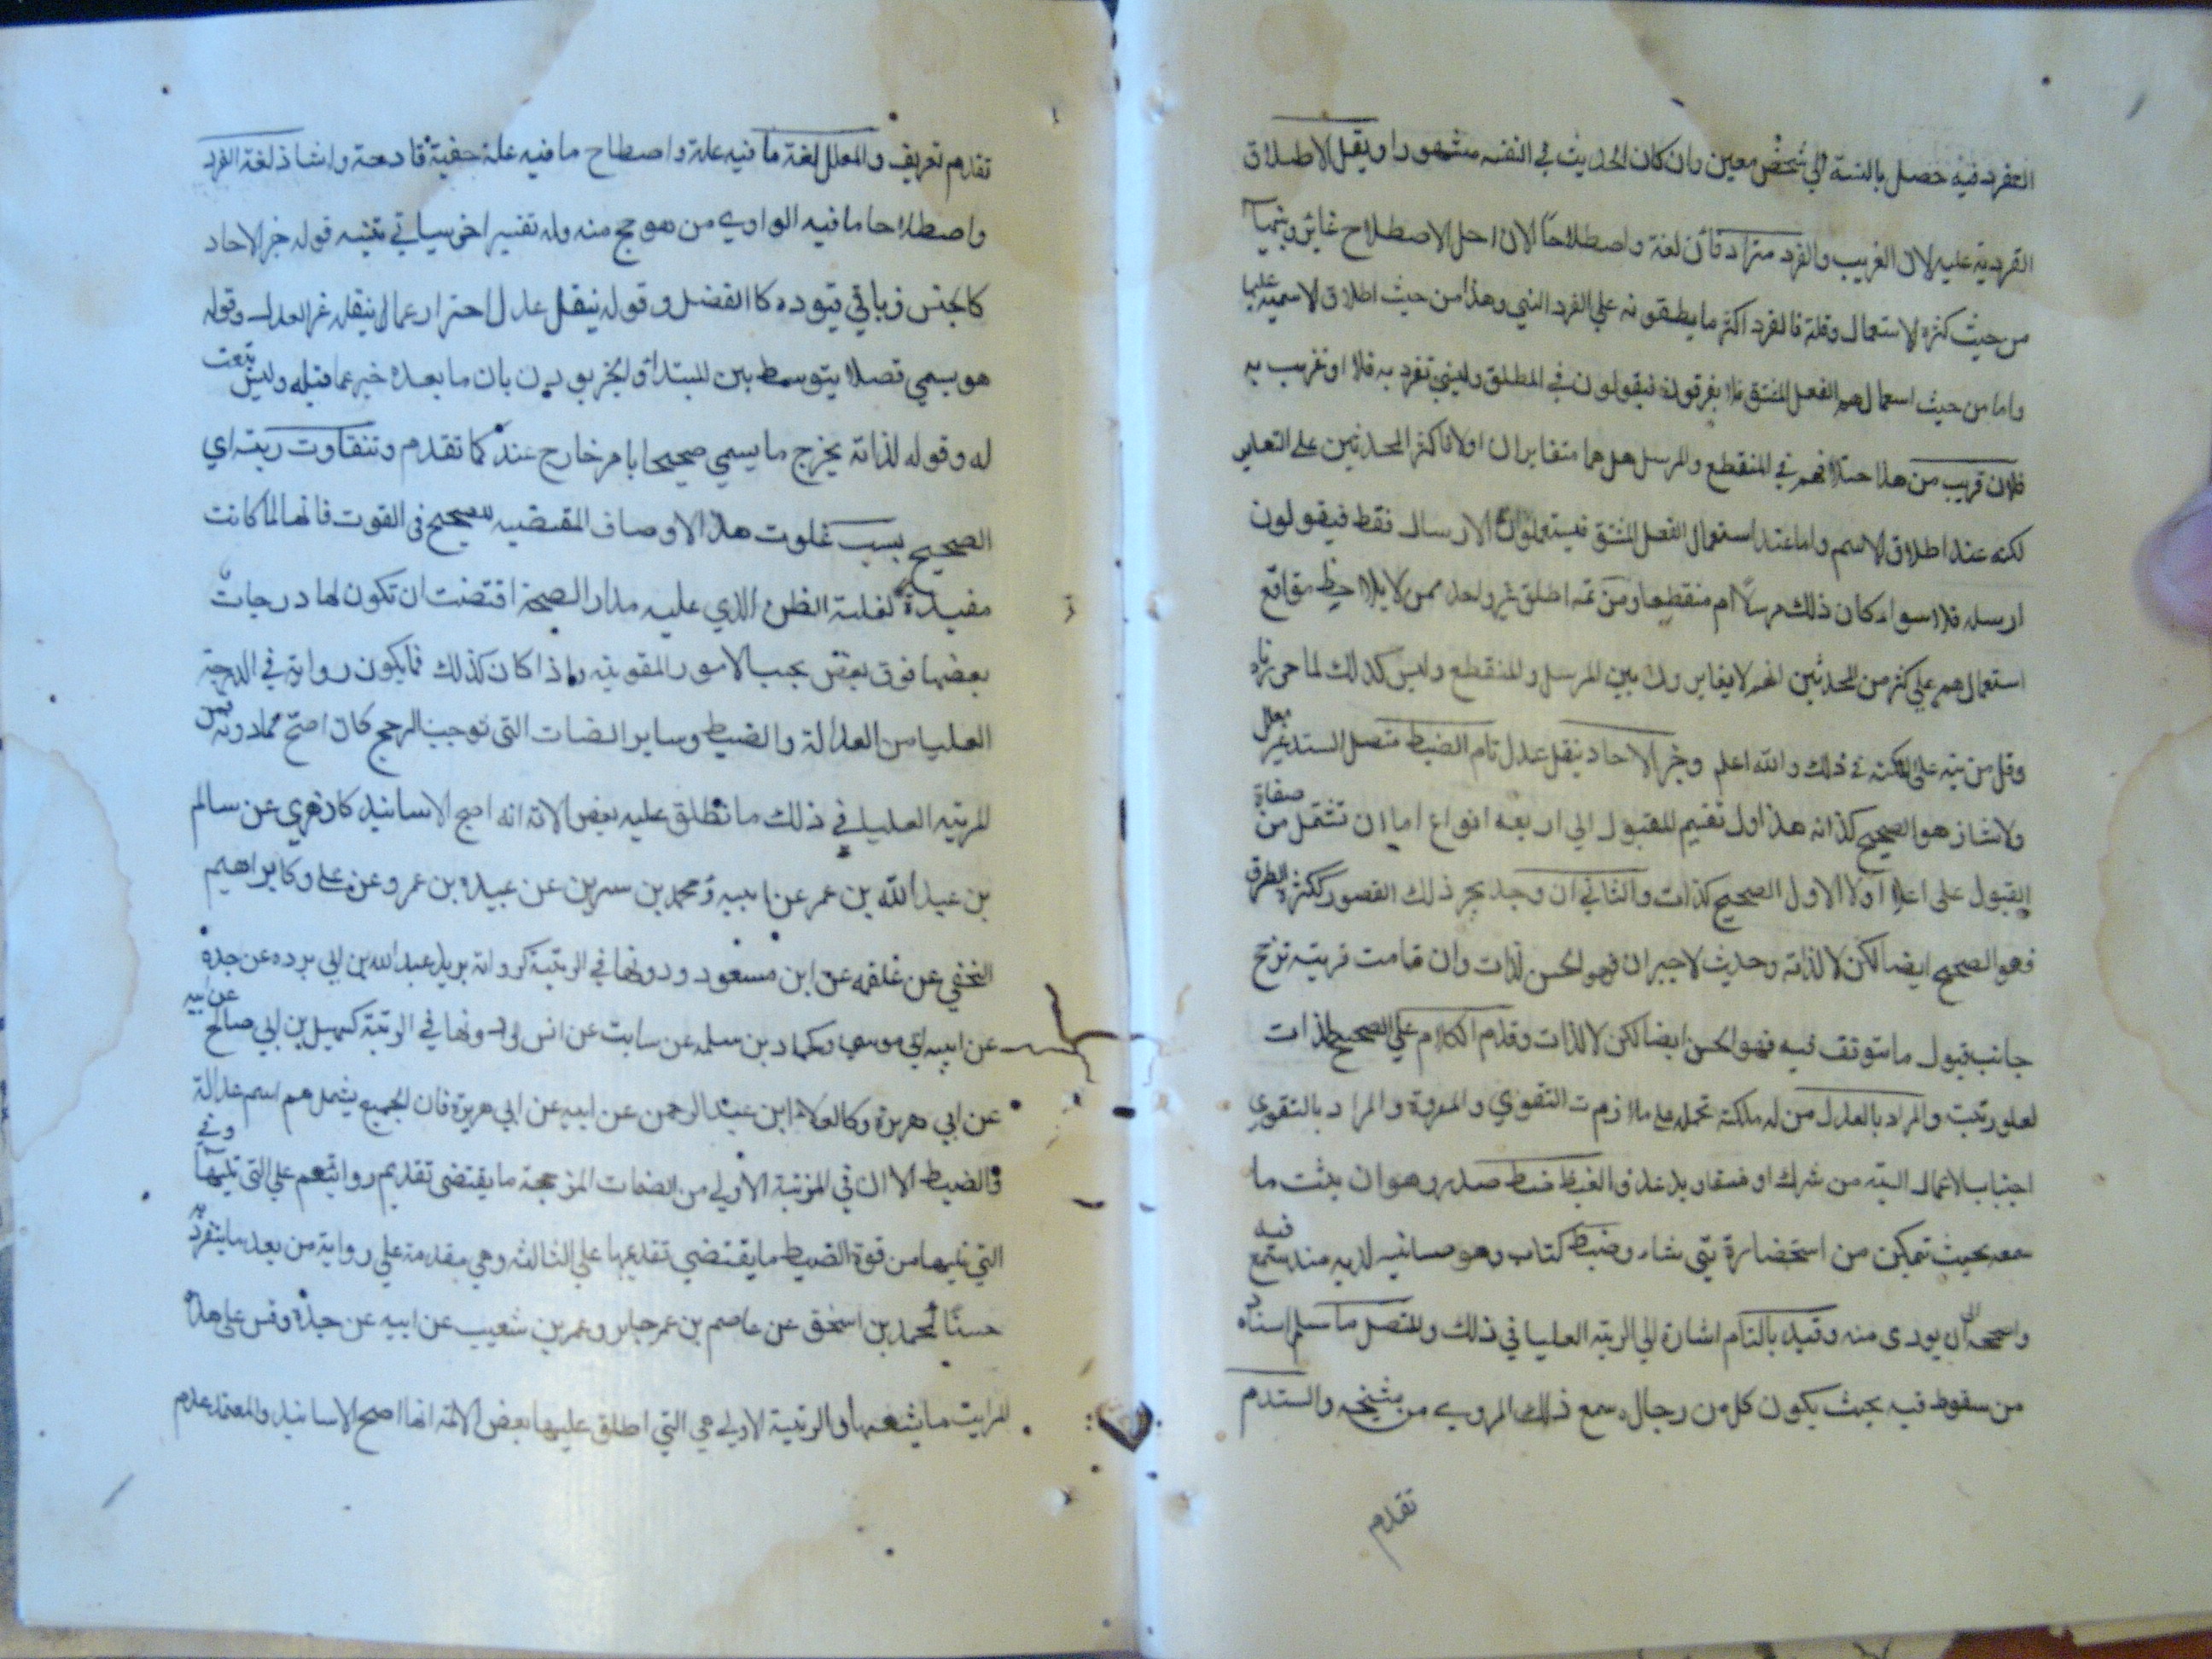 التفرد فيه حصل بالنسبة الي شخص معين وان كان الحديث في النفسه مشهورا ويقل الاطلاق
الفردية عليه لان الغريب والفرد مترادفان لغة واصطلاحا الا ان اهل الاصطلاح غايروا بينهما
من حيث كثرة الاستعمال وقلة فالفرد اكثر ما يطلقونه علي الفرد النسبي وهذا من حيث اطلاق الاسمية عليها
واما من حيث استعمالهم الفعل المشتق فلا يفرقون فيقولون في المطلق والنسبي تفرد به فلان او تغرب به
فلان قريب من هذا اختلافهم في المنقطع والمرسل هل هما متغايران اولا فاكثر المحدثين على التغاير
لكنه عند اطلاق الاسم واما عند استعمال الفعل المشتق فيستعملون الارسال فقط فيقولون
ارسله فلان سواء كان ذلك مرسلا ام منقطعا ومن ثمه اطلق غير واحد ممن لا يلاحظ مواقع
استعمالهم علي كثير من المحدثين انهم لا يغايرون بين المرسل والمنقطع وليس كذلك لما حررناه
وقل من نبه على النكتة في ذلك والله اعلم وخبر الاحاد بنقل عدل تام الضبط متصل السند غير معلل
ولا شاذ هو الصحيح لذاته هذا اول تقسيم المقبول الي اربعه انواع اما ان تشتمل من صفاة
القبول على اعلاها اولا الاول الصحيح لذات والثاني ان وجد يجبر ذلك القصور ككثرة الطرق
فهو الصحيح ايضا لكن لا لذاته وحديث لا جبران فهو الحسن لذات وان قامت قرينه ترجح
جانب قبول ما يتوقف فيه فهو الحسن ايضا لكن لا لذات وقدم الكلام علي الصحيح لذات
لعلو رتبت والمراد بالعدل من له ملكة تحمله على ملازمت التقوي والمروة والمراد بالتقوي
اجتناب الاعمال السيئه من شرك او فسق او بدعة والضبط ضبط صدر وهو ان يثبت ما
سمعه بحيث تمكن من استحضاره متي شاء وضبط كتاب وهو صيانته لديه منذ سمع فيه
وصححه الى ان يودى منه وقيد بالتام اشارة الي الرتبه العليا في ذلك والمتصل ما سلم اسناده
من سقوط فيه بحيث يكون كل من رجاله سمع ذلك المروي من شيخه والسند م
تقدم
تقدم تعريفه والمعلل لغة ما فيه علة واصطلاح ما فيه علة خفية قادحة والشاذ لغة الفرد
واصطلاحا ما فيه الراوي من هو ارجح منه وله تفسير اخر سياتي تنبيه قوله خبر الاحاد
كالجنس وباقي قيوده كالفصل وقوله بنقل عدل احتراز عما لا ينقله غير العدل وقوله
هو يسمي فصلا يتوسط بين المبتداء والخبر يوذن بان ما بعده خبر عما قبله وليس بنعت
له وقوله لذاته يخرج ما يسمي صحيحا بامر خارج عنه كما تقدم وتتفاوت رتبه اي
الصحيح بسبب تفاوت هذا الاوصاف المقتضيه للتصحيح في القوت فانها لما كانت
مفيدة لغلبة الظن الذي عليه مدار الصحة اقتضت ان تكون لها درجات
بعضها فوق بعض بحسب الامور المقوية واذا كان كذلك فما يكون رواية في الدرجة
العليا من العدالة والضبط وساير الصفات التي توجب الترجيح كان اصح مما دونه فمن
المرتبه العليا في ذلك ما تطلق عليه بعض الائمة انه اصح الاسانيد كالزهري عن سالم
بن عبد الله بن عمر عن ابيه ومحمد بن سيرين عن عبيدة بن عمر وعن علي وكابراهيم
النخعي عن علقمه عن ابن مسعود ودونها في الرتبة كرواية بريد عبد الله بن ابي برده عن جده
عن ابيه ابي موسي وكحماد بن سلمه عن سابت عن انس ودونها في الرتبة كسهيل بن ابي صالح عن ابيه
عن ابي هريرة وكالعلاء ابن عبد الرحمن عن ابيه عن ابي هريرة فان الجميع يشملهم اسم عدالة
والضبط الا ان في المرتبة الاولي من الصفات المرجحة ما يقتضي تقديم روايتهم علي التي تليها وفي
التي تليها من قوة الضبط ما يقتضي تقديمها علي الثالثه وهي مقدمة علي رواية من يعد ما ينفرد به
حسنا كمحمد بن اسحق عن عاصم بن عمر جابر وعمر بن شعيب عن ابيه عن جده وقس علي هذا
المراتب ما يشبهها والرتبة الاولي هي التي اطلق عليها بعض الائمة انها اصح الاسانيد والمعتمد عدم